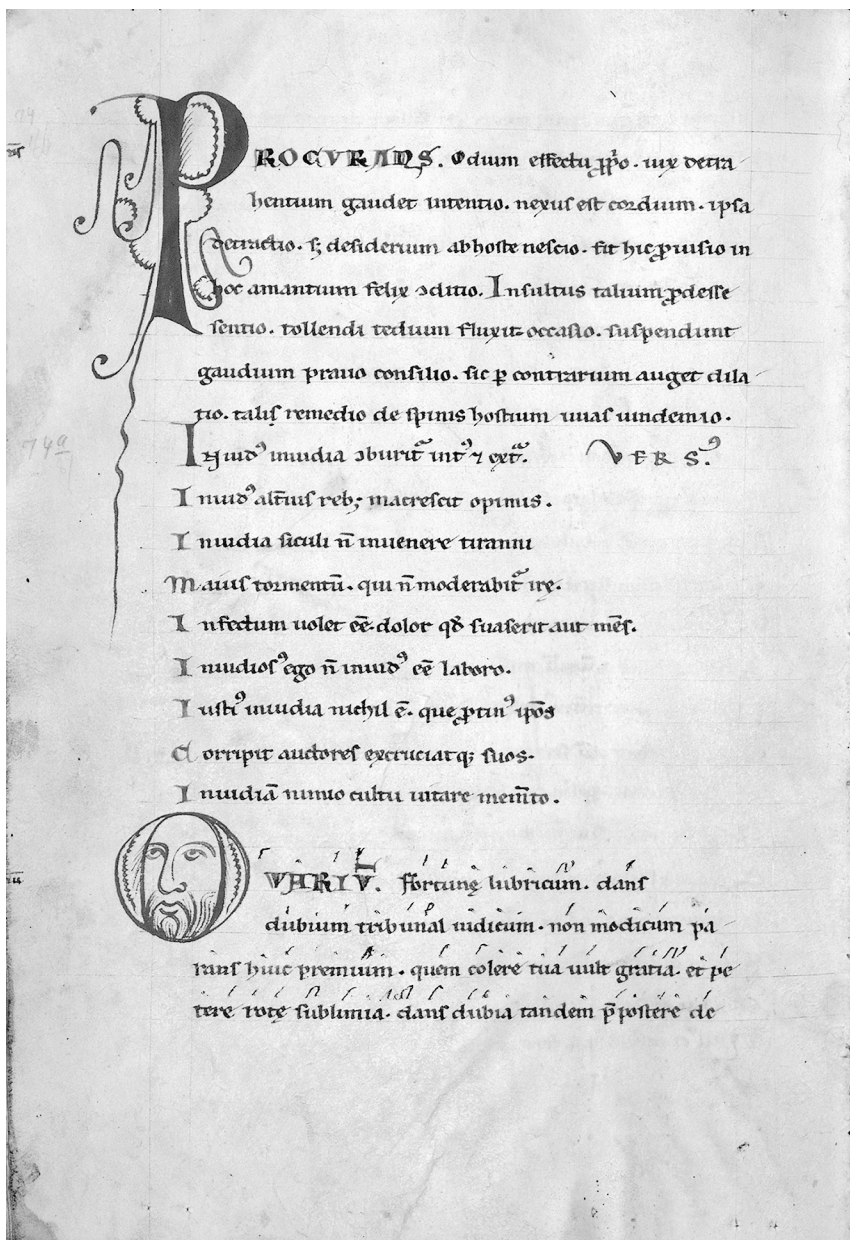 PROCURANS. Odium effectu ꝓp̲o. uix detra
hentium gaudet intentio. nexus est cordium. ipsa
detractio. sꝫ desiderium ab hoste nescio. fit hic ꝓuisio in
hoc amantium felix ↄditio. Insultus talium ꝓdesse
sentio. tollendi tedium fluxit occasio. suspendunt
gaudium prauo consilio. sic ꝑ contrarium auget dila
tio. talis remedio de spinis hostium uuas uindemio.
Inuidꝰ inuidia ↄburit᷑ intꝰ ⁊ ext᷑. VERSꝰ.
Inuidꝰ alt̄ius rebꝫ macrescit opimis.
Inuidia siculi n̄ inuenere tiranni
Maius tormentū. qui n̄ moderabit᷑ irę.
Infectum uolet eē. dolor qd̄ suaserit aut mēs.
Inuidiosꝰ ego n̄ inuidꝰ eē laboro.
Iustiꝰ inuidia nichil ē. que ꝓtinꝰ ip̄os
Corripit auctores excruciatqꝫ suos.
Inuidiā nimio cultu uitare mem̄to.
O VARIV̄. ffortunę lubricum. dans
dubium tribunal iudicum. non modicum pa
rans huic premium. quem colere tua uult gratia. et pe
tere rotę sublimia. dans dubia tandem p̄postere de